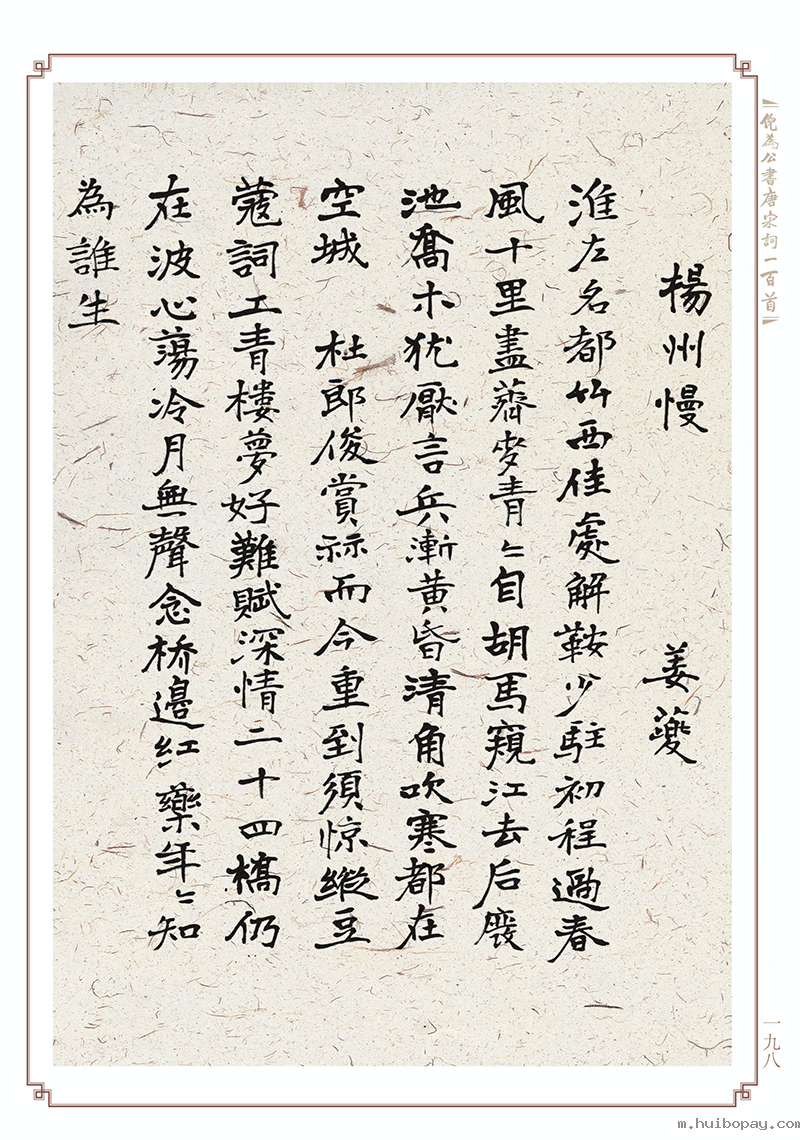 倪為公書唐宋詞一百首
揚州慢
姜夔
淮左名都竹西佳處解鞍少駐初程過春
風十里盡薺麥青〻自胡馬窺江去后廢
池喬木犹厭言兵漸黃昏清角吹寒都在
空城　杜郎俊賞祘而今重到須惊縱豆
蔻詞工青樓夢好難賦深情二十四橋仍
在波心蕩冷月無聲念桥邊紅藥年〻知
為誰生
一九八
m.huibopay.com